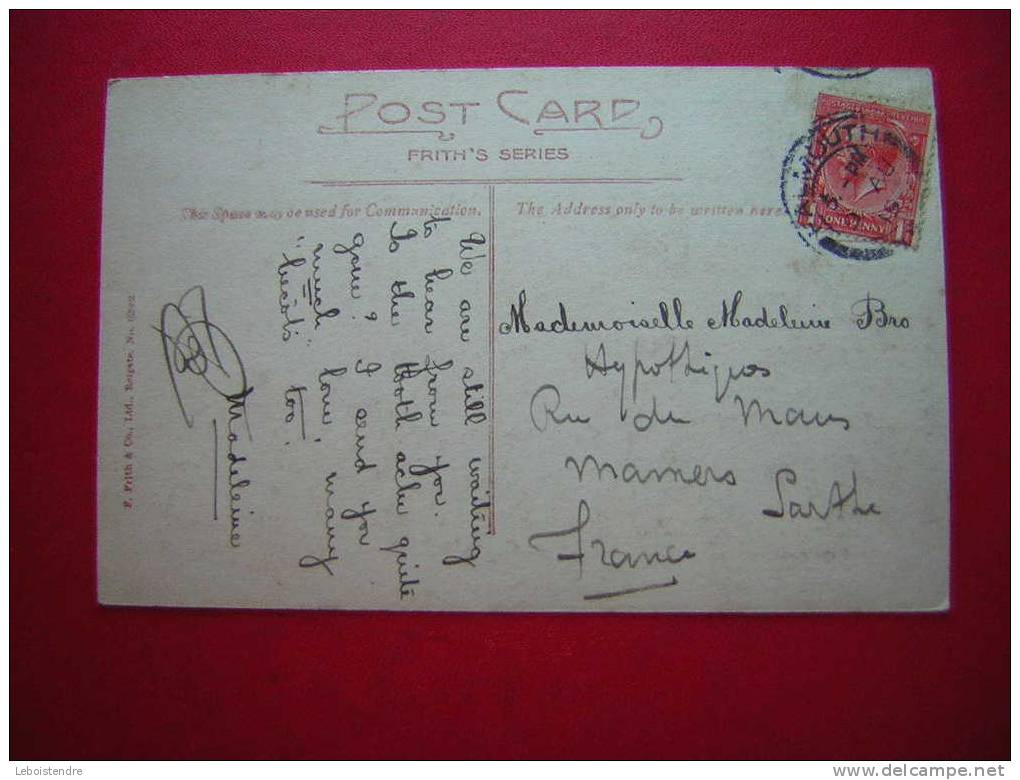 POST CARD
FRITH'S SERIES
This Space may be used for Communication.
The Address only to be written here.
We are still waiting
to hear from you.
Is the tooth ache quite
gone? I send you
much love, many
"bécots" too.
Madeleine
Mademoiselle Madeleine Bro
Hypothèques
Rue du Mans
Mamers
Sarthe
France
ONE PENNY
F. Frith & Co., Ltd., Reigate. No.
Leboistendre
www.delcampe.net